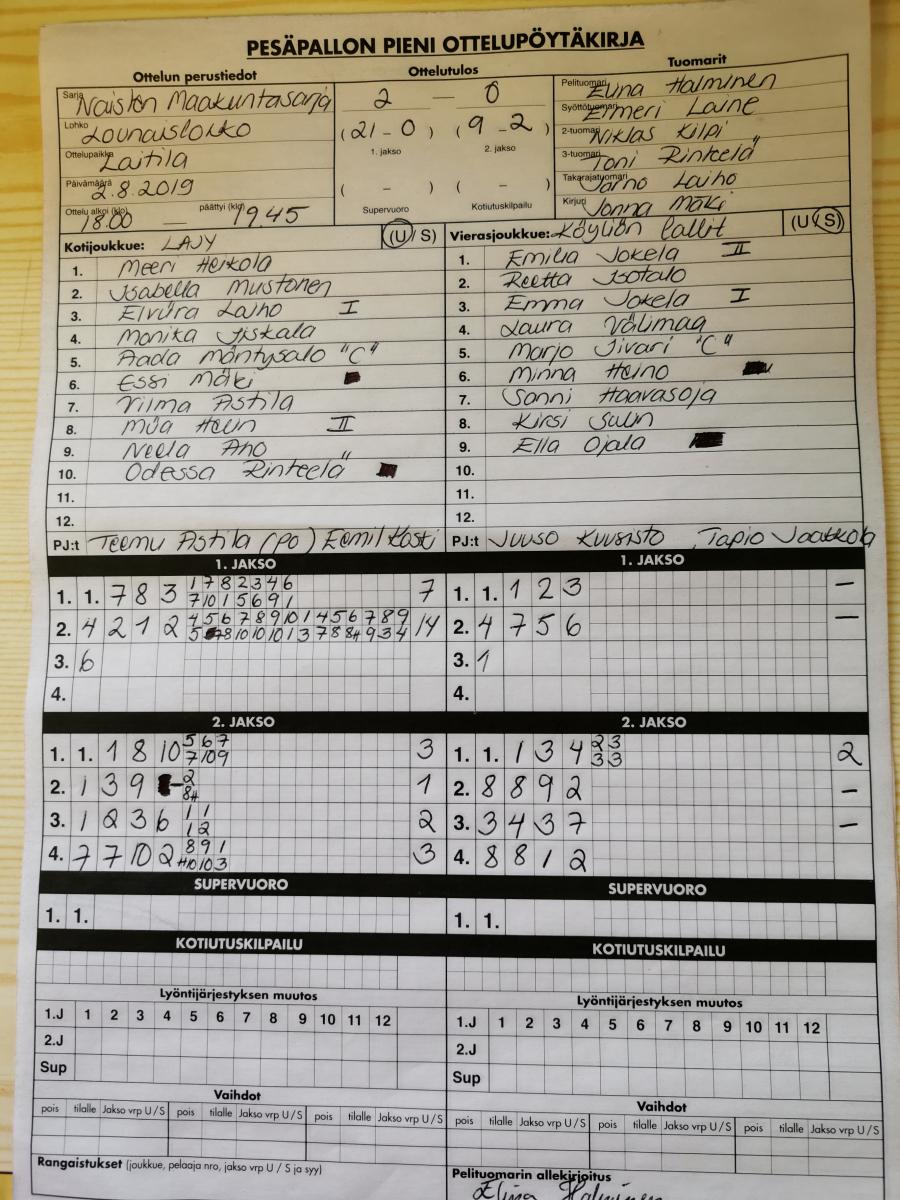 PESÄPALLON PIENI OTTELUPÖYTÄKIRJA
Ottelun perustiedot
Ottelutulos
Tuomarit
Sarja Naisten Maakuntasarja
2 — 0
Pelituomari Elina Halminen
Lohko Lounaislohko
(21 - 0) (9 - 2)
Syöttötuomari Elmeri Laine
1. jakso 2. jakso
2-tuomari Niklas Kilpi
Ottelupaikka Laitila
3-tuomari Toni Rinteelä
Päivämäärä 2.8.2019
( - ) ( - )
Takarajatuomari Jarno Laiho
Ottelu alkoi (klo) 18.00 — päättyi (klo) 19.45
Supervuoro Kotiutuskilpailu
Kirjuri Jonna Mäki
Kotijoukkue: LAJY (U / S)
Vierasjoukkue: Köyliön Lallit (U / S)
1. Meeri Heikola
1. Emilia Jokela II
2. Isabella Mustonen
2. Reetta Isotalo
3. Elviira Laiho I
3. Emma Jokela I
4. Monika Yiskala
4. Laura Välimaa
5. Aada Mäntysalo "C"
5. Marjo Iivari "C"
6. Essi Mäki
6. Minna Heino
7. Vilma Astila
7. Sonni Haavasoja
8. Miia Helin II
8. Kirsi Salin
9. Neela Aho
9. Ella Ojala
10. Odessa Rinteelä
10.
11.
11.
12.
12.
PJ:t Teemu Astila (po) Eemil Kosti
PJ:t Juuso Kuusisto, Tapio Jaakkola
1. JAKSO
1. JAKSO
1. 1. 7 8 3 1 7 8 2 3 4 6 7
7 10 1 5 6 9 1
1. 1. 1 2 3 —
2. 4 2 1 2 4 5 6 7 8 9 10 1 4 5 6 7 8 9 14
2. 4 7 5 6 —
3. 6
3. 1
4.
4.
2. JAKSO
2. JAKSO
1. 1. 1 8 10 5 6 7 3
7 10 9
1. 1. 1 3 4 2 3 2
3 3
2. 1 3 9 - 2 1
8#
2. 8 8 9 2 —
3. 1 2 3 6 1 1 2
1 2
3. 3 4 3 7 —
4. 7 7 10 2 8 9 1 3
#10 10 3
4. 8 8 1 2
SUPERVUORO
SUPERVUORO
1. 1.
1. 1.
KOTIUTUSKILPAILU
KOTIUTUSKILPAILU
Lyöntijärjestyksen muutos
Lyöntijärjestyksen muutos
1.J 1 2 3 4 5 6 7 8 9 10 11 12
1.J 1 2 3 4 5 6 7 8 9 10 11 12
2.J
2.J
Sup
Sup
Vaihdot
Vaihdot
pois tilalle Jakso vrp U / S pois tilalle Jakso vrp U / S pois tilalle Jakso vrp U / S
pois tilalle Jakso vrp U / S pois tilalle Jakso vrp U / S pois tilalle Jakso vrp U / S
Rangaistukset (joukkue, pelaaja nro, jakso vrp U / S ja syy)
Pelituomarin allekirjoitus
Elina Halminen